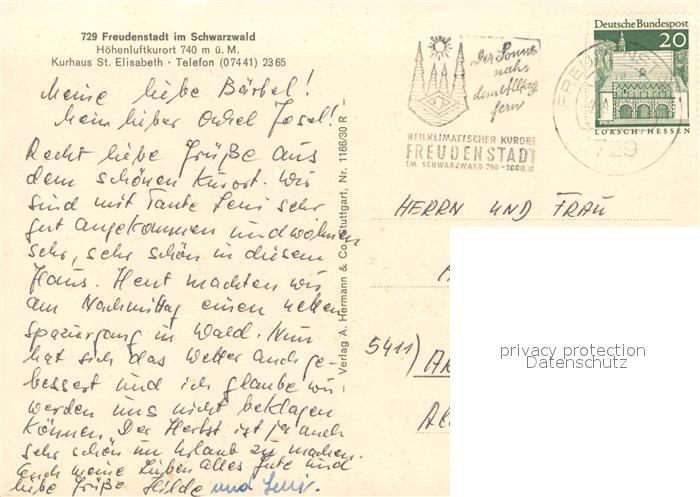 729 Freudenstadt im Schwarzwald
Höhenluftkurort 740 m ü. M.
Kurhaus St. Elisabeth · Telefon (07441) 2365
Meine liebe Bärbel!
Mein lieber Onkel Josef!
Recht liebe Grüße aus
dem schönen Kurort. Wir
sind mit Tante Leni sehr
gut angekommen und wohnen
sehr, sehr schön in diesem
Haus. Heut machten wir
am Nachmittag einen netten
Spaziergang in Wald. Nun
hat sich das Wetter auch ge-
bessert und ich glaube wir
werden uns nicht beklagen
können. Der Herbst ist ja auch
sehr schön im Urlaub zu machen.
Euch meine Lieben alles Gute und
liebe Grüße Hilde und Leni.
Verlag A. Hermann & Co., Stuttgart, Nr. 1166/30 R
Der Sonne
nah
dem Alltag
fern
HEILKLIMATISCHER KURORT
FREUDENSTADT
IM SCHWARZWALD 740-1000 M
Deutsche Bundespost
20
LORSCH/HESSEN
729
HERRN UND FRAU
5411)
privacy protection
Datenschutz